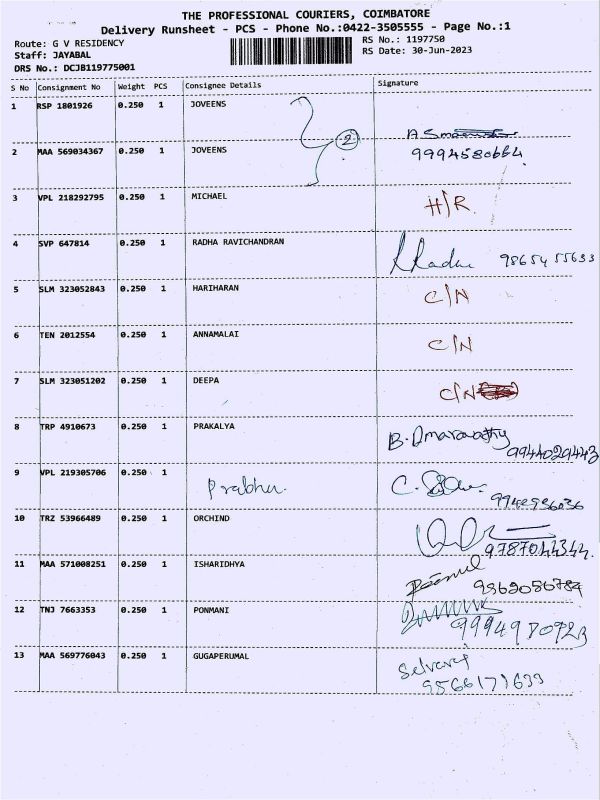 THE PROFESSIONAL COURIERS, COIMBATORE
Delivery Runsheet - PCS - Phone No.:0422-3505555 - Page No.:1
Route: G V RESIDENCY
RS No.: 1197750
Staff: JAYABAL
RS Date: 30-Jun-2023
DRS No.: DCJB119775001
S No Consignment No Weight PCS Consignee Details Signature
1 RSP 1801926 0.250 1 JOVEENS
2
2 MAA 569034367 0.250 1 JOVEENS 9994580664
3 VPL 218292795 0.250 1 MICHAEL H/R
4 SVP 647814 0.250 1 RADHA RAVICHANDRAN 9865455633
5 SLM 323052843 0.250 1 HARIHARAN C/N
6 TEN 2012554 0.250 1 ANNAMALAI C/N
7 SLM 323051202 0.250 1 DEEPA C/N
8 TRP 4910673 0.250 1 PRAKALYA 9944029443
9 VPL 219305706 0.250 1 Prabhu.
10 TRZ 53966489 0.250 1 ORCHIND 9787044344.
11 MAA 571008251 0.250 1 ISHARIDHYA
12 TNJ 7663353 0.250 1 PONMANI
13 MAA 569776043 0.250 1 GUGAPERUMAL Selvaraj
9566171633